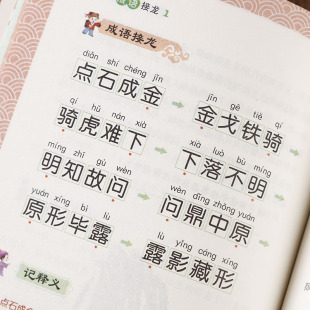 成语接龙 1
成语接龙
diǎn shí chéng jīn
点石成金
jīn gē tiě qí
金戈铁骑
qí hǔ nán xià
骑虎难下
xià luò bù míng
下落不明
míng zhī gù wèn
明知故问
wèn dǐng zhōng yuán
问鼎中原
yuán xíng bì lù
原形毕露
lù yǐng cáng xíng
露影藏形
记释义
点石成